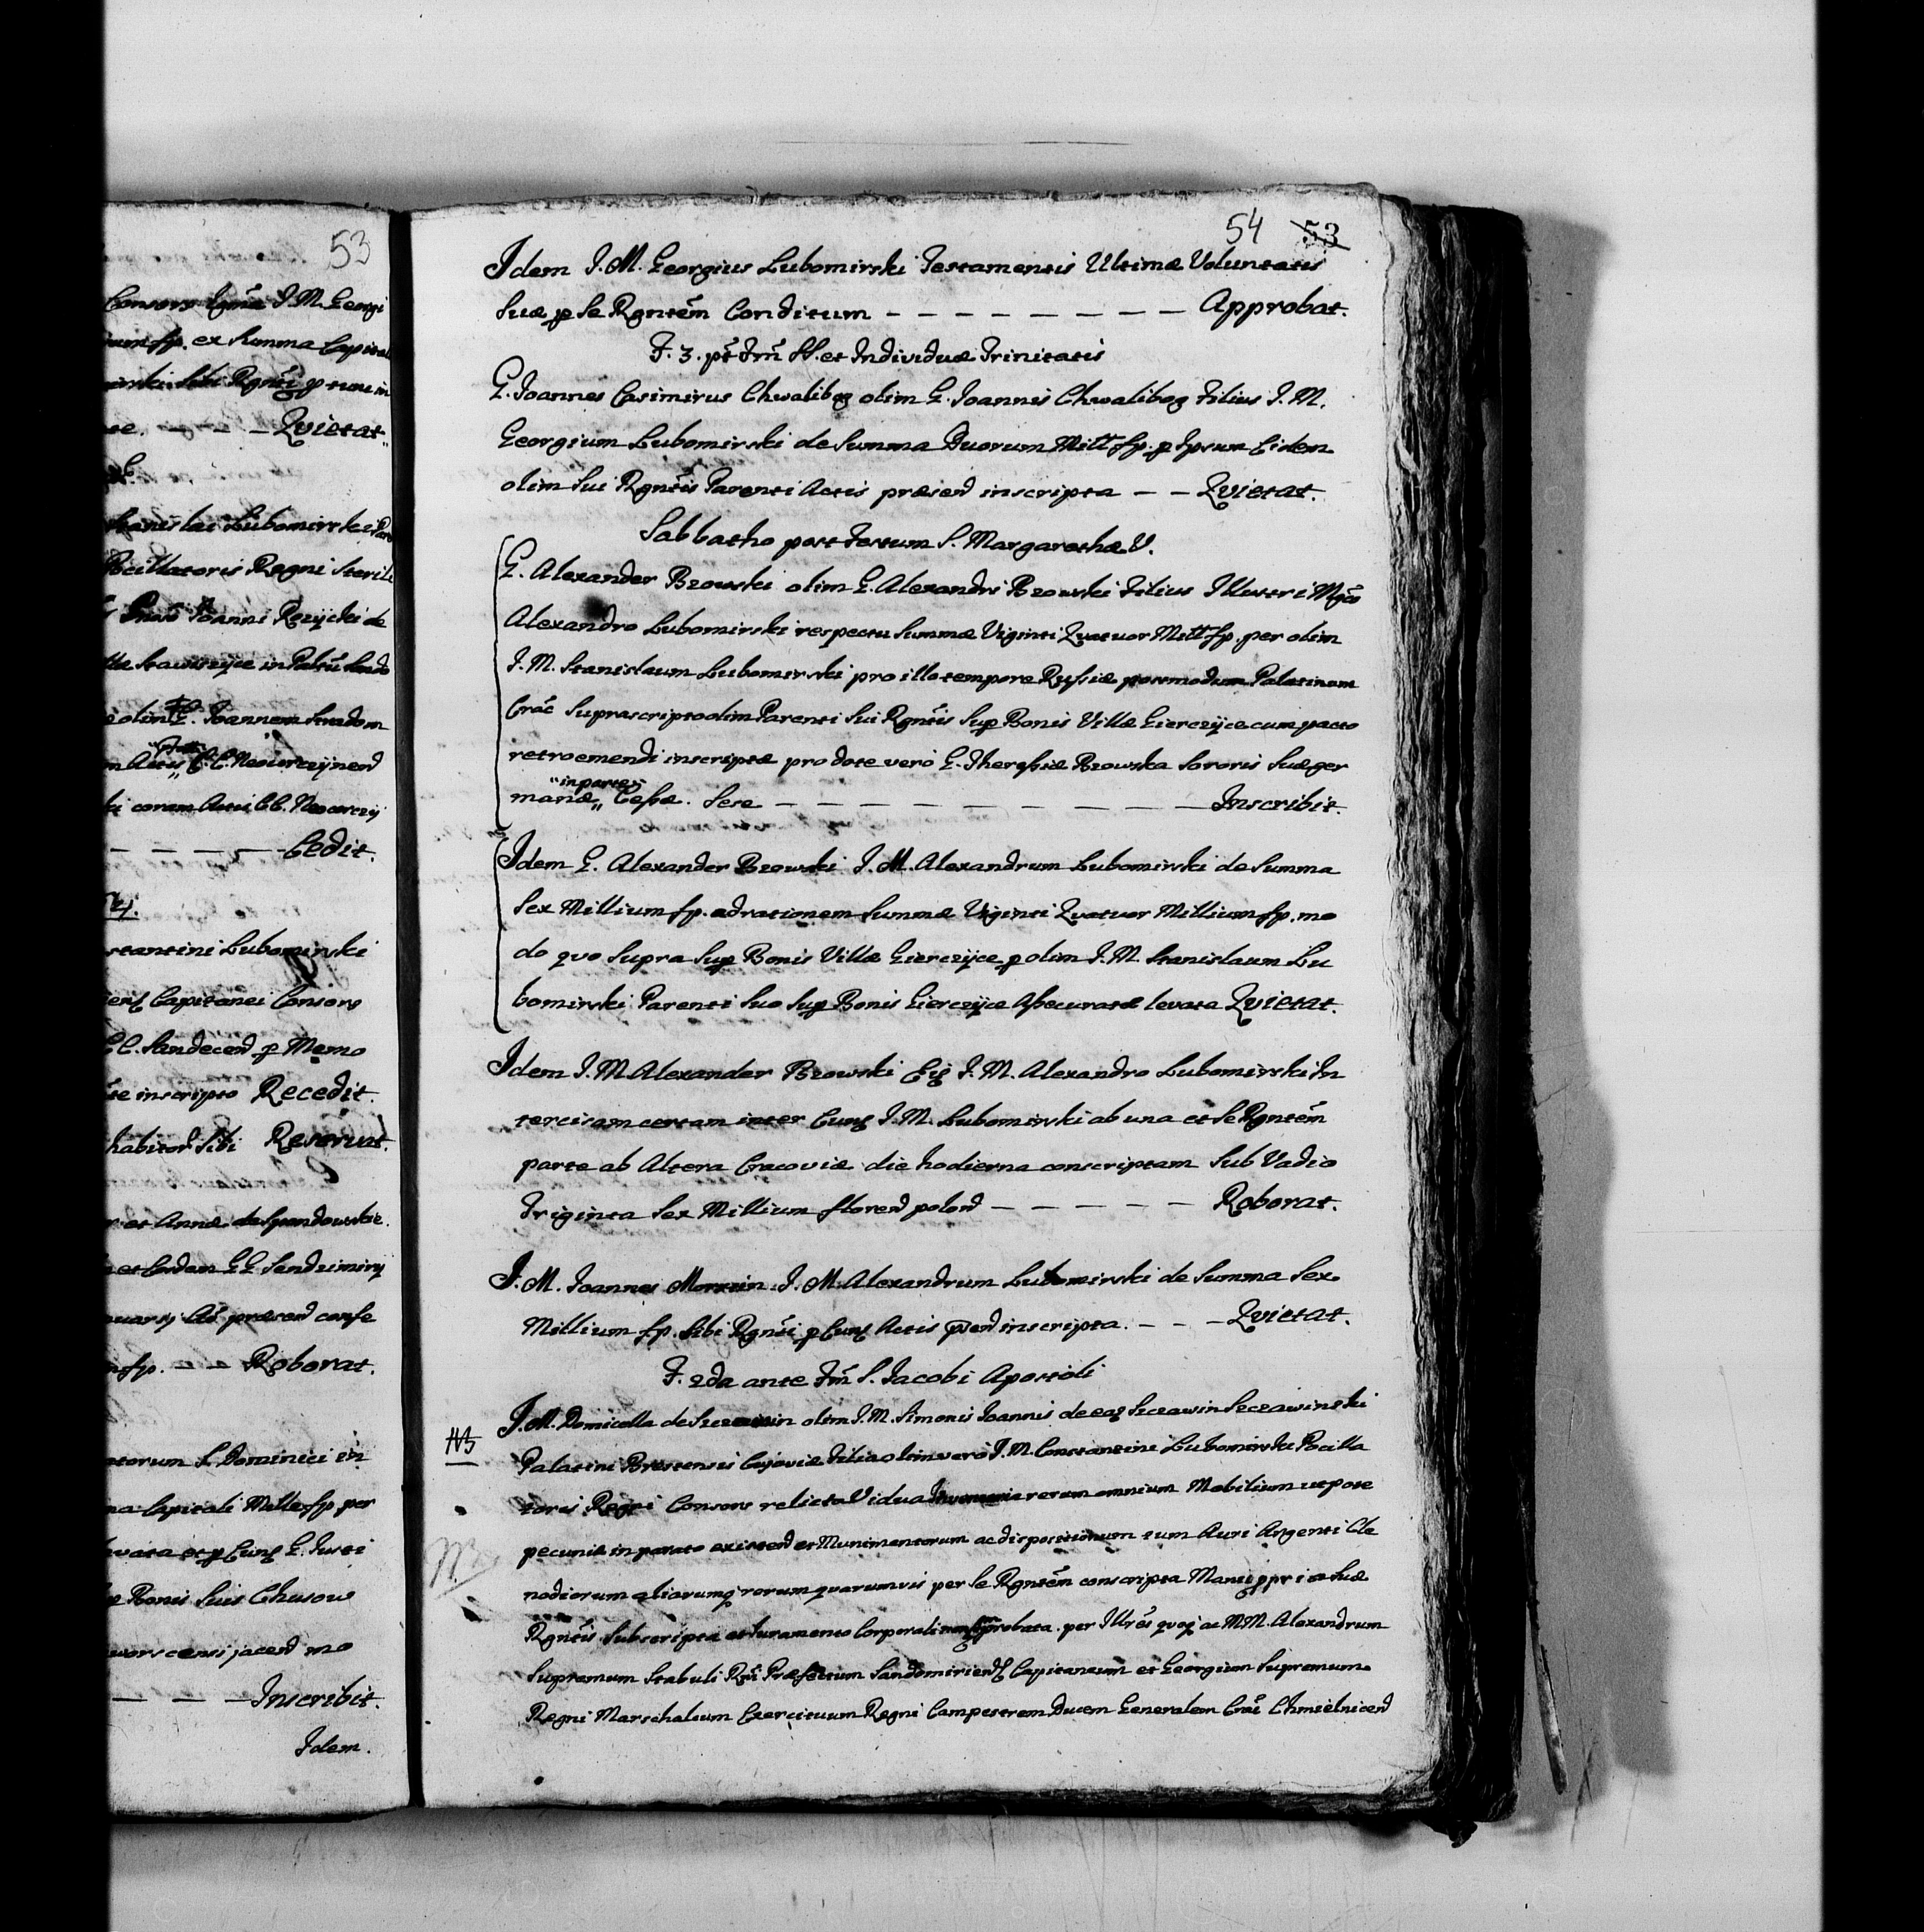 53
Consors I. M. Georgi
fp. ex Summa Capital
Qvietat.
Stanislai Lubomirski
Pocillatoris Regni Sterili
Joanni Rczycki de
Stawiszyce in
olim G. Joannem
Actis CC. Neocorczynen
ki coram Actis CC. Neocorczy
Cedit.
stantini Lubomirski
iens Capitanei Consors
CC. Sandecen p Memo
te inscripto Recedit.
habitor Sibi Reservat.
r et Annæ de
et Eordem GG Sendzimiry
nuarÿ Ad præsen conse
fp. — — Roborat.
atorum S. Dominici in
na Capitali Mille fp per
evata et p Eund G.
Bonis Suis Chusow
census jacen mo
— — — Inscribit.
Idem.
54 53
Idem I. M. Georgius Lubomirski Testamentis Ultimæ Voluntatis
Suæ p Se Rgntēm Conditum — — — — — — — — Approbat.
F. 3. pt Fm SS. et Individuæ Trinitatis
G. Joannes Casimirus Chwalibog olim G. Joannis Chwalibog Filius I. M.
Georgium Lubomirski de Summa Duorum Mill fp. p Ipsum Eidem
olim Sui Rgntis Parenti Actis præsen inscripta — — Qvietat.
Sabbatho post Festum S. Margarethæ V.
G. Alexander Brzowski olim G. Alexandri Brzowski Filius Illustri Mgco
Alexandro Lubomirski respectu Summæ Viginti Qvatuor Mill fp. per olim
I. M. Stanislaum Lubomirski pro illo tempore Russiæ postmodum Palatinum
Crac Suprascripto olim Parenti Sui Rgntis Sup Bonis Villæ Gierczyce cum pacto
retroemendi inscriptæ pro dote vero G. Theressiæ Brzowska Sororis Suæ ger
manæ „in parte„ Cessæ. Sese — — — — — — — — Inscribit.
Idem G. Alexander Brzowski I. M. Alexandrum Lubomirski de Summa
Sex Millium fp. ad rationem Summæ Viginti Qvatuor Millium fp. mo
do quo Supra Sup Bonis Villæ Gierczyce p olim I. M. Stanislaum Lu
bomirski Parenti Suo Sup Bonis Gierczyce Assecuratæ levata Qvietat.
Idem I. M. Alexander Brzowski I. M. Alexandro Lubomirski In
tercisam certam inter Eund I. M. Lubomirski ab una et Se Rgntēm
parte ab Altera Cracoviæ die hodierna conscriptam Sub Vadio
Triginta Sex Millium floren polon — — — — — Roborat.
I. M. Joannes Morsztin I. M. Alexandrum Lubomirski de Summa Sex
Millium fp. Sibi Rgnti p Eund Actis pren inscripta. — — — Qvietat.
F. 2da ante Fm S. Jacobi Apostoli
I. M. Domicella de Szczawin olim I. M. Simonis Joannis de ead Szczawin Szczawinski
NB
Palatini Brestensis Cujaviæ Filia olim vero I. M. Constantini Lubomirski Pocilla
toris Regni Consors relicta Vidua rerum omnium Mobilium utpote
pecuniæ in parato existen et Munimentorum ac dispositionum tum Auri Argenti Cle
nodiorum aliarumq rerum quarumvis per Se Rgntēm conscripta Manu ppria Suæ
Rgntis Subscripta et Juramento Corporali per Illres quoq ac MM. Alexandrum
Supremum Stabuli Rni Præfectum Sandomiriens Capitaneum et Georgium Supremum
Regni Marschalcum Exercituum Regni Campestrem Ducem Generalem Crac Chmielnicen